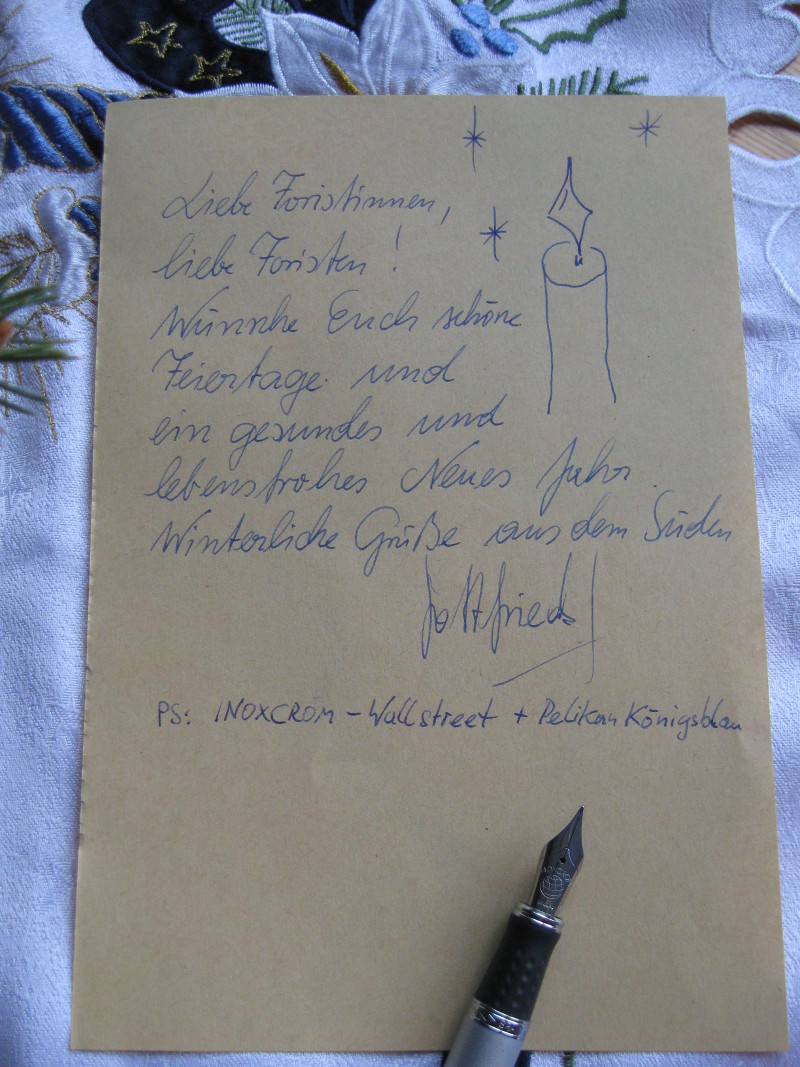 Liebe Foristinnen,
liebe Foristen!
Wünsche Euch schöne
Feiertage und
ein gesundes und
lebensfrohes Neues Jahr.
Winterliche Grüße aus dem Süden
Gottfried
PS: INOXCROM - Wallstreet + Pelikan Königsblau